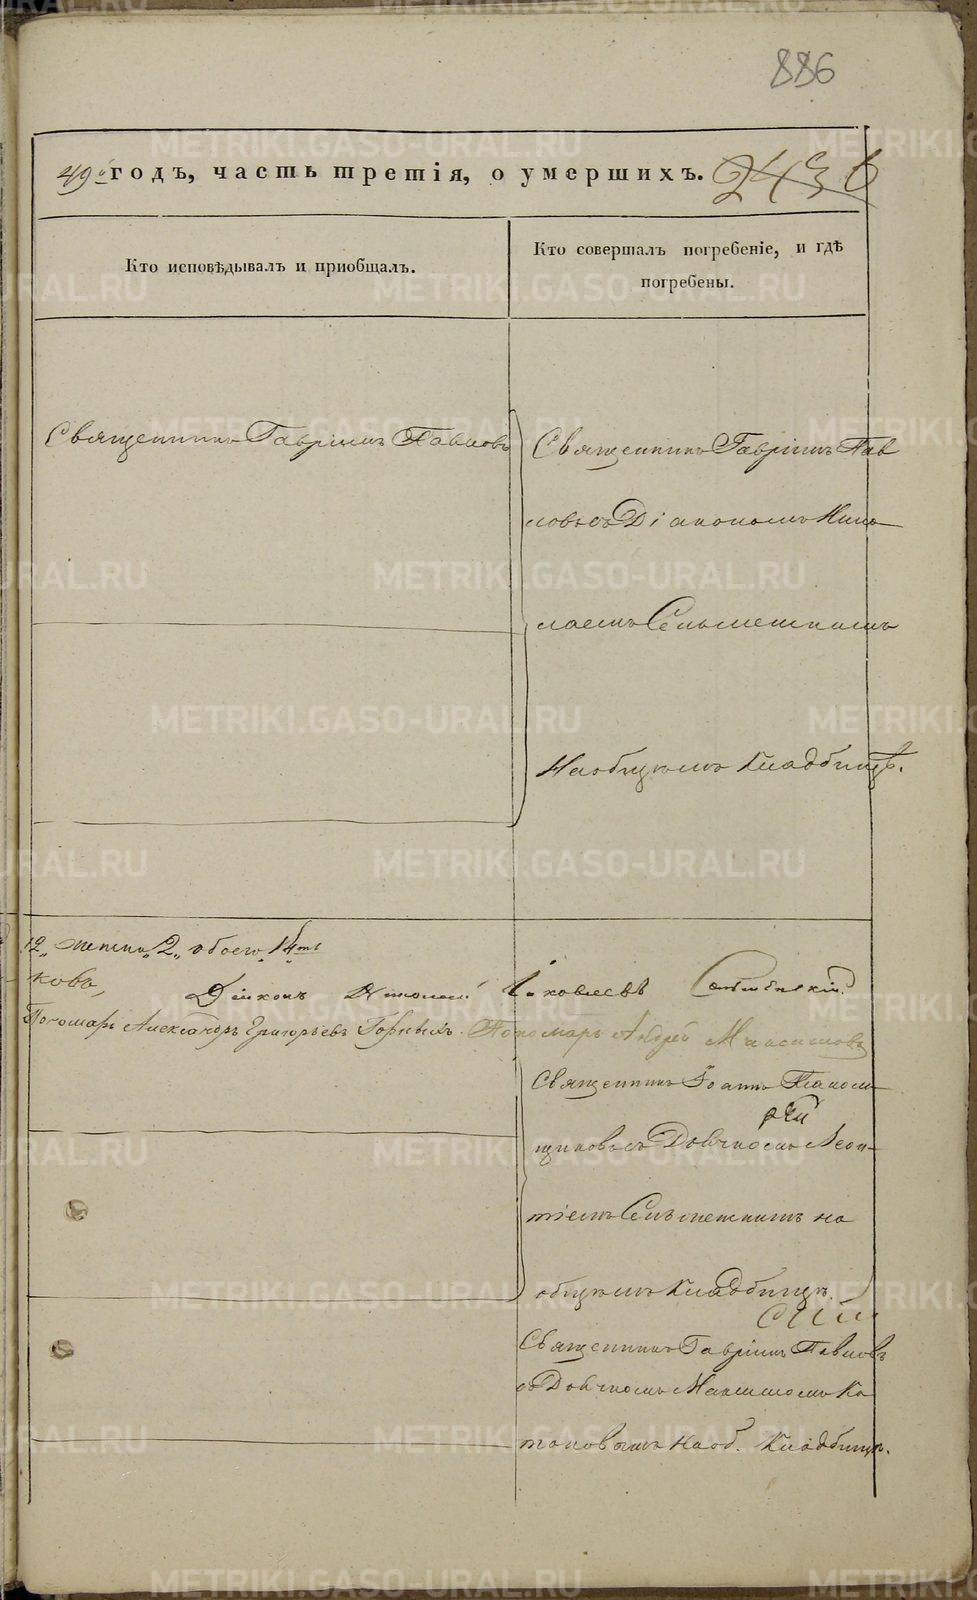 886
49й годъ, часть третія, о умершихъ. 2436
Кто исповѣдывалъ и приобщалъ.
Кто совершалъ погребеніе, и гдѣ
погребены.
Священникъ Гавріилъ Павловъ
Священникъ Гавріилъ Пав
ловъ съ Діакономъ Нико
лаемъ
На общемъ Кладбищѣ.
12, женска 2, обоего 14ть
кова,
Діаконъ Николай Яковлевъ
Пономарь Александръ Григорьевъ Горныхъ. Пономарь Андрей Максимовъ
Священникъ Іоаннъ
съ Дьячкомъ Леон
тіемъ на
общемъ Кладбищѣ.
Священникъ Гавріилъ Павловъ
съ Дьячкомъ Ка
тановымъ на об. Кладбищѣ.
METRIKI.GASO-URAL.RU